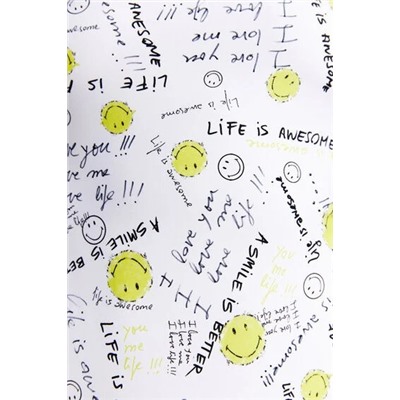 I love you
I love me
I love life
AWESOME
awesome...!
I love you
I love me
LiFE is AWESOME
LiFE is AWESOME
LiFE is
Life is awesome
LiFE is AWESOME
AWESOME
Life is awesome
love you !!!
love me
love life!!!
I love you
I love me
I love life!!!
A SMiLE iS BETTER
A SMiLE iS BETTER
Life is awesome
you
me
life !!!
I love you
I love me
I love life!!
Life is awesome
you
me
life !!!
I love you
I love me
I love life!!!
LiFE is
Life is awesome
is awesome...